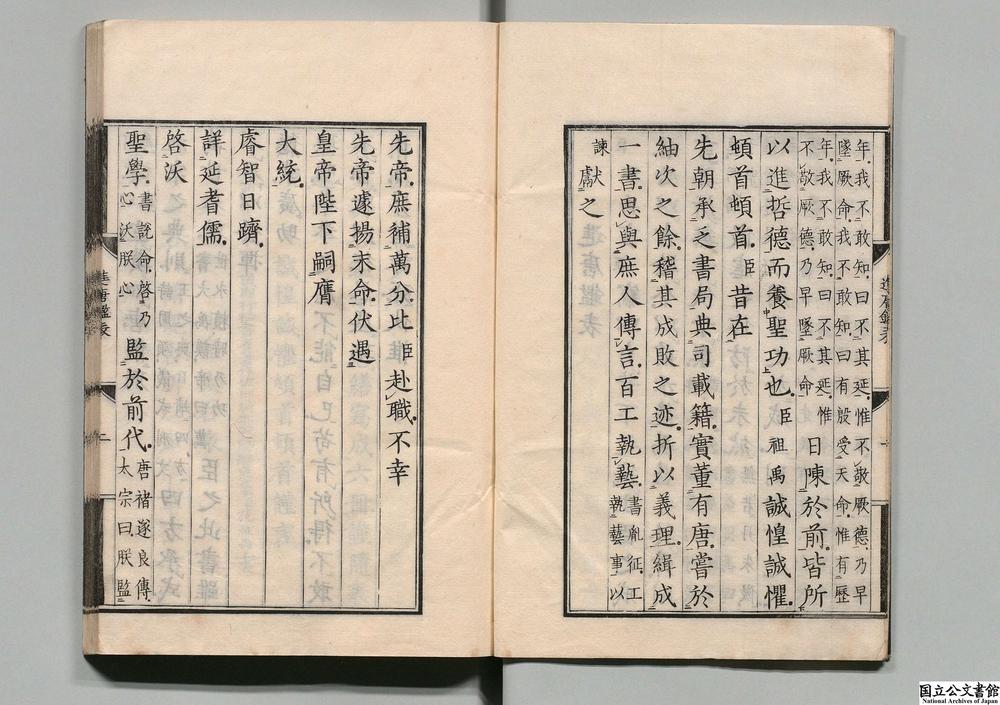 年我不敢知曰不其延惟不敬厥德乃早
墜厥命我不敢知曰有殷受天命惟有歷
年我不敢知曰不其延惟
不敬厥德乃早墜厥命
日陳於前皆所
以進哲德而養聖功也臣祖禹誠惶誠懼
頓首頓首臣昔在
先朝承乏書局典司載籍實董有唐嘗於
紬次之餘稽其成敗之迹折以義理緝成
一書思與庶人傳言百工執藝
書胤征工
執藝事以
諫
獻之
進唐鑑表
一
先帝庶補萬分比臣赴職不幸
先帝遽揚末命伏遇
皇帝陛下嗣膺
大統
睿智日躋
詳延耆儒
啓沃
聖學
書說命啓乃
心沃朕心
監於前代
唐褚遂良傳
太宗曰朕監
進唐鑑表
二
国立公文書館
National Archives of Japan